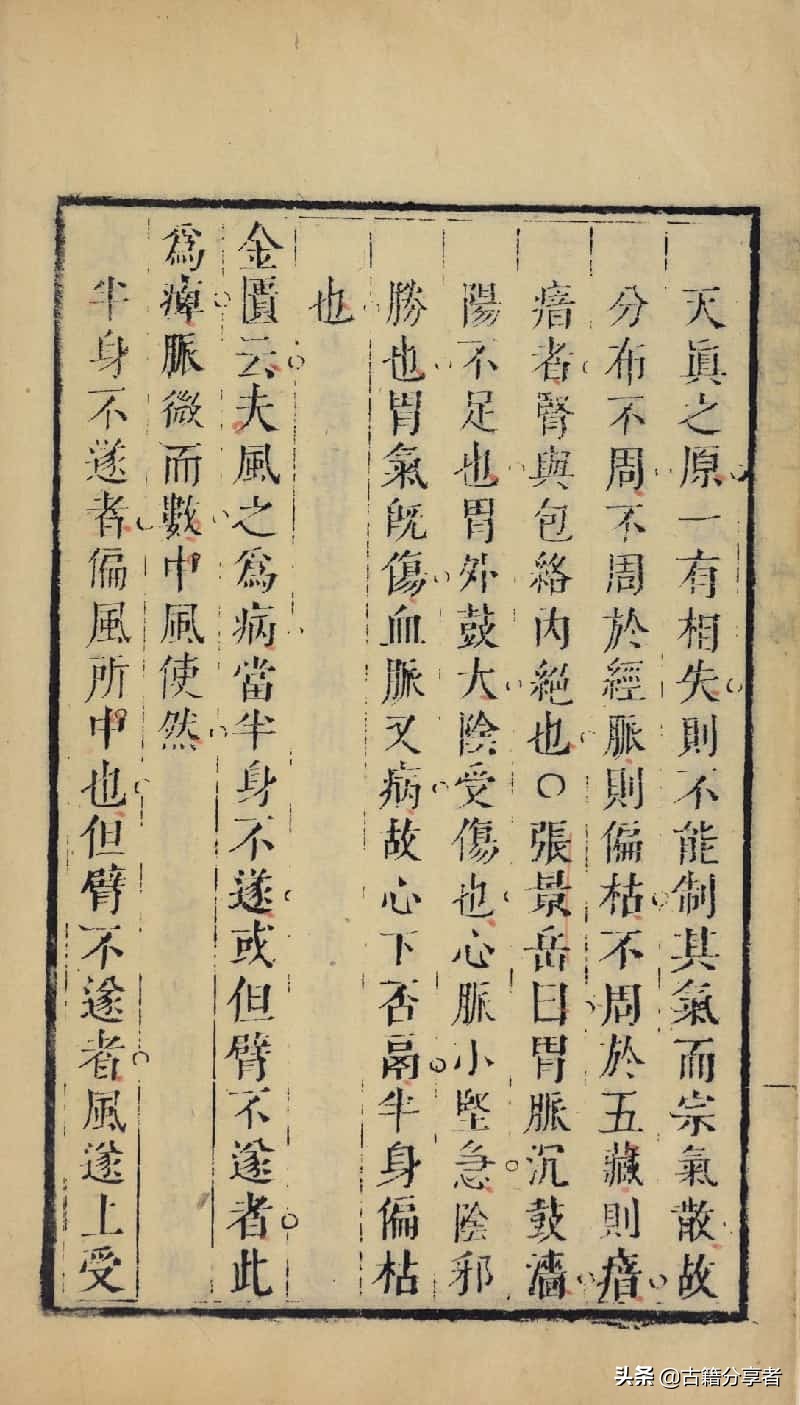 天眞之原一有相失則不能制其氣而宗氣散故
分布不周不周於經脈則偏枯不周於五藏則瘖
瘖者腎與包絡內絕也〇張景岳曰胃脈沉鼓濇
陽不足也胃外鼓大陰受傷也心脈小堅急陰邪
勝也胃氣旣傷血脈又病故心下否鬲半身偏枯
也
金匱云夫風之爲病當半身不遂或但臂不遂者此
爲痺脈微而數中風使然
半身不遂者偏風所中也但臂不遂者風遂上受
头条 @古籍分享者